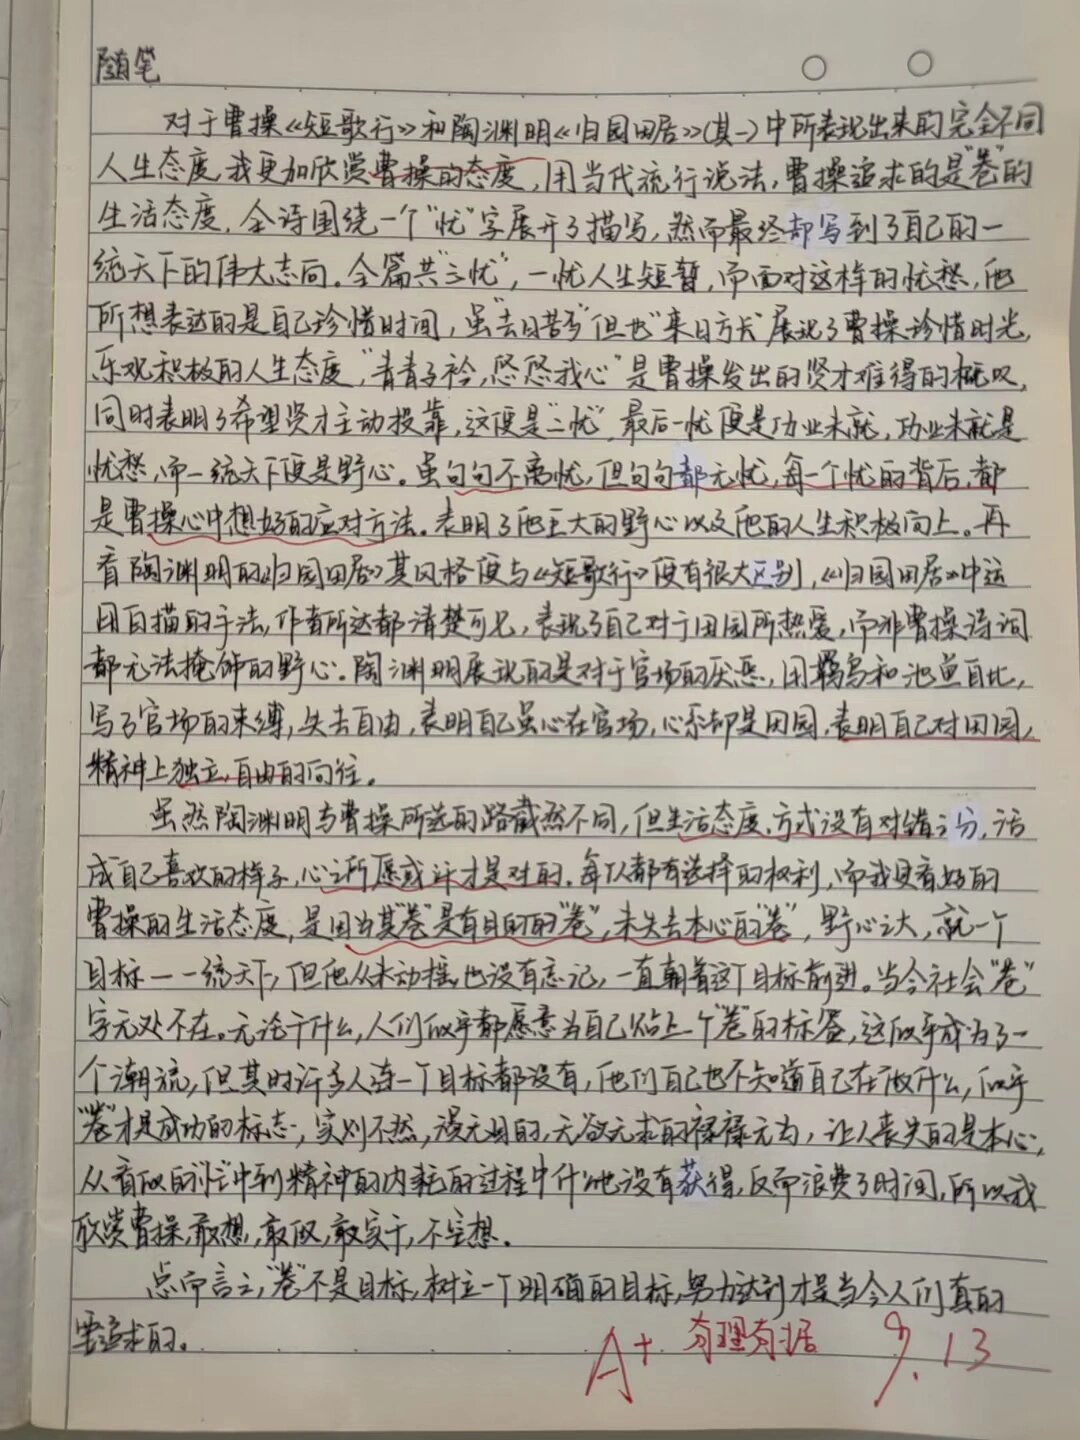 随笔
对于曹操《短歌行》和陶渊明《归园田居》(其一)中所表现出来的完全不同
人生态度,我更加欣赏曹操的态度,用当代流行说法,曹操追求的是"卷"的
生活态度,全诗围绕一个"忧"字展开了描写,然而最终却写到了自己的一
统天下的伟大志向。全篇共"三忧",一忧人生短暂,而面对这样的忧愁,他
所想表达的是自己珍惜时间,虽"去日苦多"但也"来日方长"展现了曹操珍惜时光,
乐观积极的人生态度,"青青子衿,悠悠我心"是曹操发出的贤才难得的概叹,
同时表明了希望贤才主动投靠,这便是"二忧",最后一忧便是功业未就,功业未就是
忧愁,而一统天下便是野心。虽句句不离忧,但句句都无忧,每一个忧的背后,都
是曹操心中想好的应对方法。表明了他巨大的野心以及他的人生积极向上。再
看陶渊明的《归园田居》其风格便与《短歌行》便有很大区别,《归园田居》中运
用白描的手法,作者所达都清楚可见,表现了自己对于田园所热爱,而非曹操诗词
都无法掩饰的野心。陶渊明展现的是对于官场的厌恶,用羁鸟和池鱼自比,
写了官场的束缚,失去自由,表明自己虽心在官场,心系却是田园,表明自己对田园,
精神上独立,自由的向往。
虽然陶渊明与曹操所选的路截然不同,但生活态度、方式没有对错之分,活
成自己喜欢的样子,心之所愿或许才是对的。每人都有选择的权利,而我只看好的
曹操的生活态度,是因为其"卷"是有目的的"卷",未失去本心的"卷",野心之大,就一个
目标——统天下,但他从未动摇,也没有忘记,一直朝着这个目标前进。当今社会"卷"
字无处不在。无论干什么,人们似乎都愿意为自己贴上一个"卷"的标签,这似乎成为了一
个潮流,但其时许多人连一个目标都没有,他们自己也不知道自己在做什么,似乎
"卷"才是成功的标志,实则不然,漫无目的,无欲无求的碌碌无为,让人丧失的是本心,
从看似的忙中到精神的内耗的过程中什么也没有获得,反而浪费了时间,所以我
欣赏曹操,敢想,敢做,敢实干,不空想。
总而言之,"卷"不是目标,树立一个明确的目标,努力达到才是当今人们真的
要追求的。
A+ 有理有据 9.13